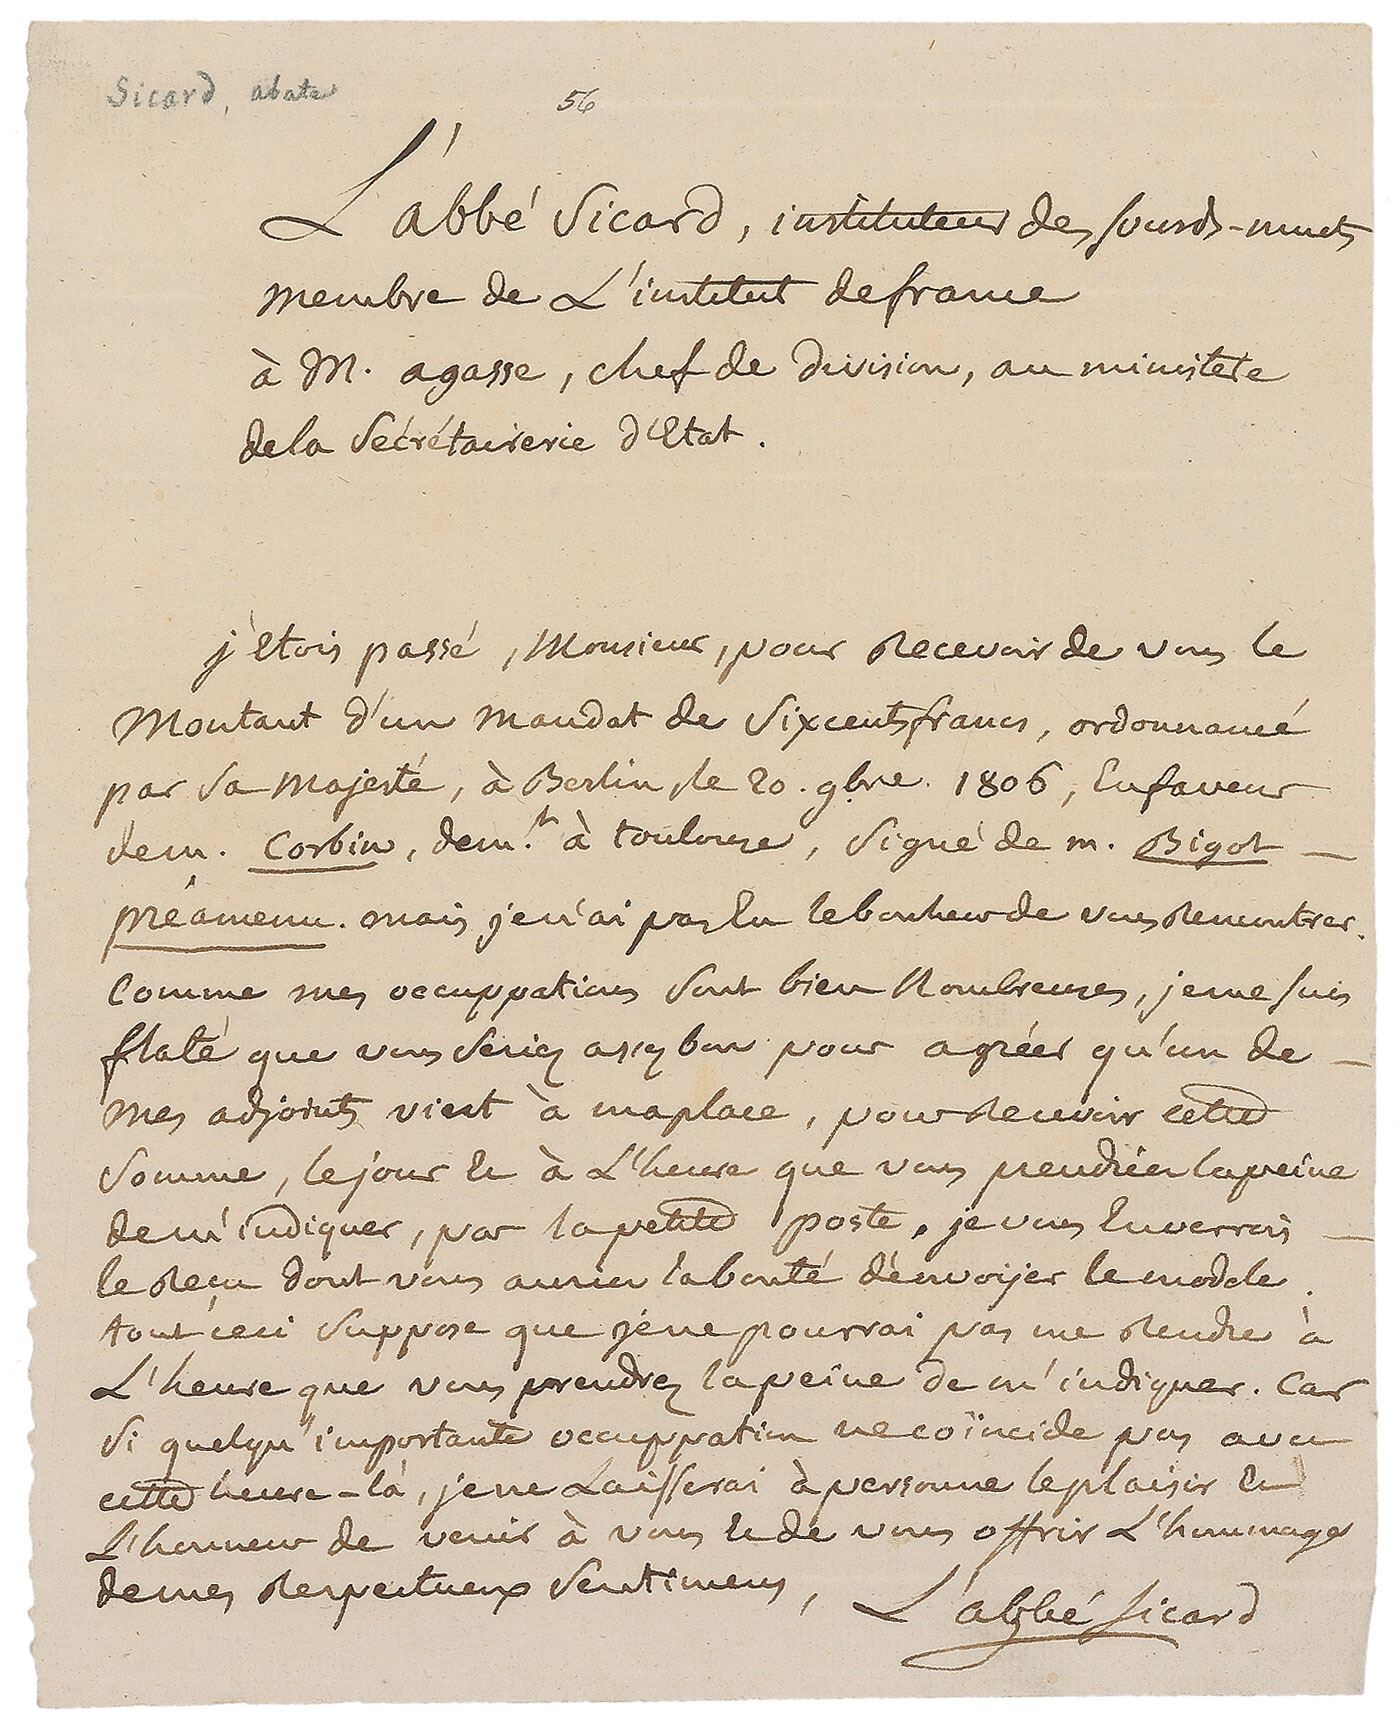 Sicard, abate
56
L'abbé Sicard, instituteur des sourds-muets
membre de L'institut de france
à M. agasse, chef de division, au ministere
de la Secrétairerie d'Etat.
j'etois passé, Monsieur, pour recevoir de vous le
Montant d'un mandat de Six cents francs, ordonnancé
par sa majesté, à Berlin, le 20. 9bre. 1806, En faveur
de m. Corbin, dem.t à toulouse, signé de m. Bigot —
préameneu. mais je n'ai pas Eu le bonheur de vous rencontrer.
Comme mes occuppations sont bien Nombreuses, je me suis
flaté que vous seriez assez bon pour agréer qu'un de —
mes adjoints vient à ma place, pour recevoir cette
Somme, le jour Et à L'heure que vous prendriez la peine
de m'indiquer, par la petite poste, je vous Enverrois —
le reçu dont vous auriez la bonté d'envoijer le modele.
tout ceci suppose que je ne pourrai pas me rendre à
L'heure que vous prendrez la peine de m'indiquer. Car
si quelqu'importante occuppation ne coïncide pas avec
cette heure-là, je ne Laisserai à personne le plaisir Et
L'honneur de venir à vous Et de vous offrir L'hommage
de mes respectueux sentimens,
L'abbé Sicard